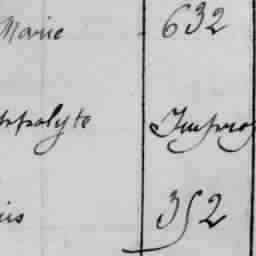 Marie 632
ppolyte Improp
is 352